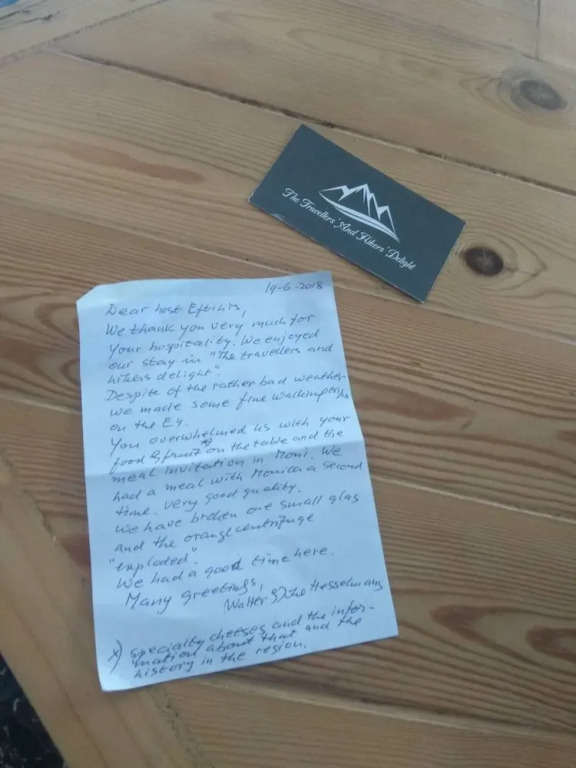 The Travellers' And Hikers' Delight
14-6-2018
Dear host Eftihis,
We thank you very much for
your hospitality. We enjoyed
our stay in "The travellers and
hikers delight".
Despite of the rather bad weather
we made some fine walkingtrips
on the E4.
You overwhelmed us with your
food & fruit x) on the table and the
meal invitation in Moni. We
had a meal with Monica a second
time. Very good quality.
We have broken one small glas
and the orange centrifuge
"exploded".
We had a good time here.
Many greetings,
Walter Hesselmans
x) specialty cheeses and the infor-
mation about that and the
history in the region.